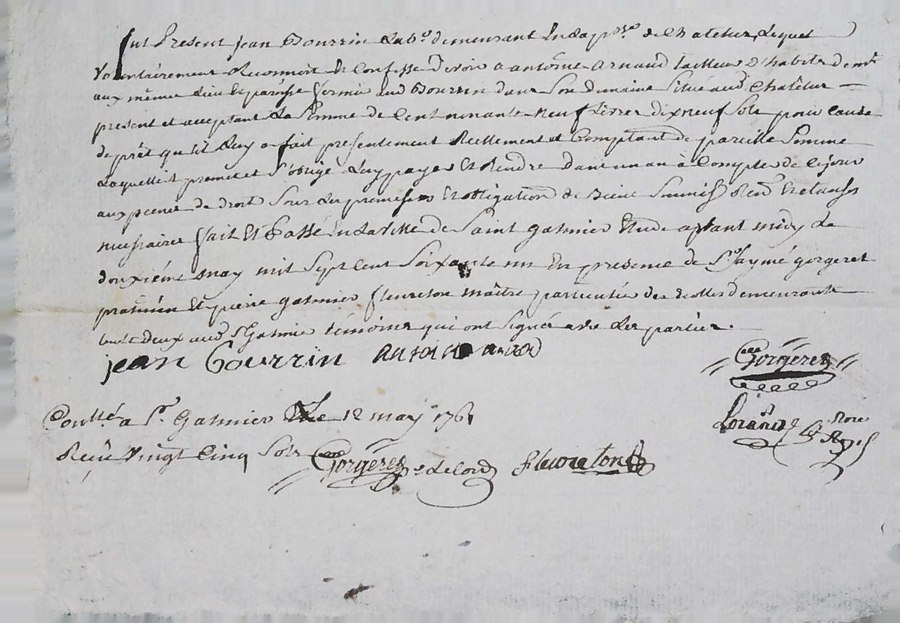 fut Present jean Gourrin Labo.r demeurant En La p.sse de Chatelus Lequel
volontairement Reconnoit Et Confesse devoir a antoine arnaud tailleur d'habits dem.t
aux même lieu Et paroisse fermier aud Gourrin dans Son domaine Situé aud Chatelus
present et acceptant La Somme de Cent nonante neuf Livres dix neuf Sols pour Cause
de prêt qu'il Luy a fait presentement Reellement et Comptant de pareille Somme
Laquelle il promet et S'oblige Luy payer Et Rendre dans un an à Compter de Ce jour
aux peines de droit Sous Les promesses Et obligation de Biens Soumis. Ren.on Et clauses
necessaires fait Et Passé En La Ville de Saint Galmier Etude avant midy Le
douxième may mil Sept Cent Soixante un En presence de S.r aymé gorgeret
praticien Et pierre galmier fleureton maître particulier des ecolles demeurants
tout deux aud S.t Galmier temoins qui ont Signé avec Les parties.
jean Gourrin antoine arnaud
Gorgeret
Conttlé a S.t Galmier Le 12 may 1761
Reçu Vingt Cinq Sols Gorgeret Delord fleureton